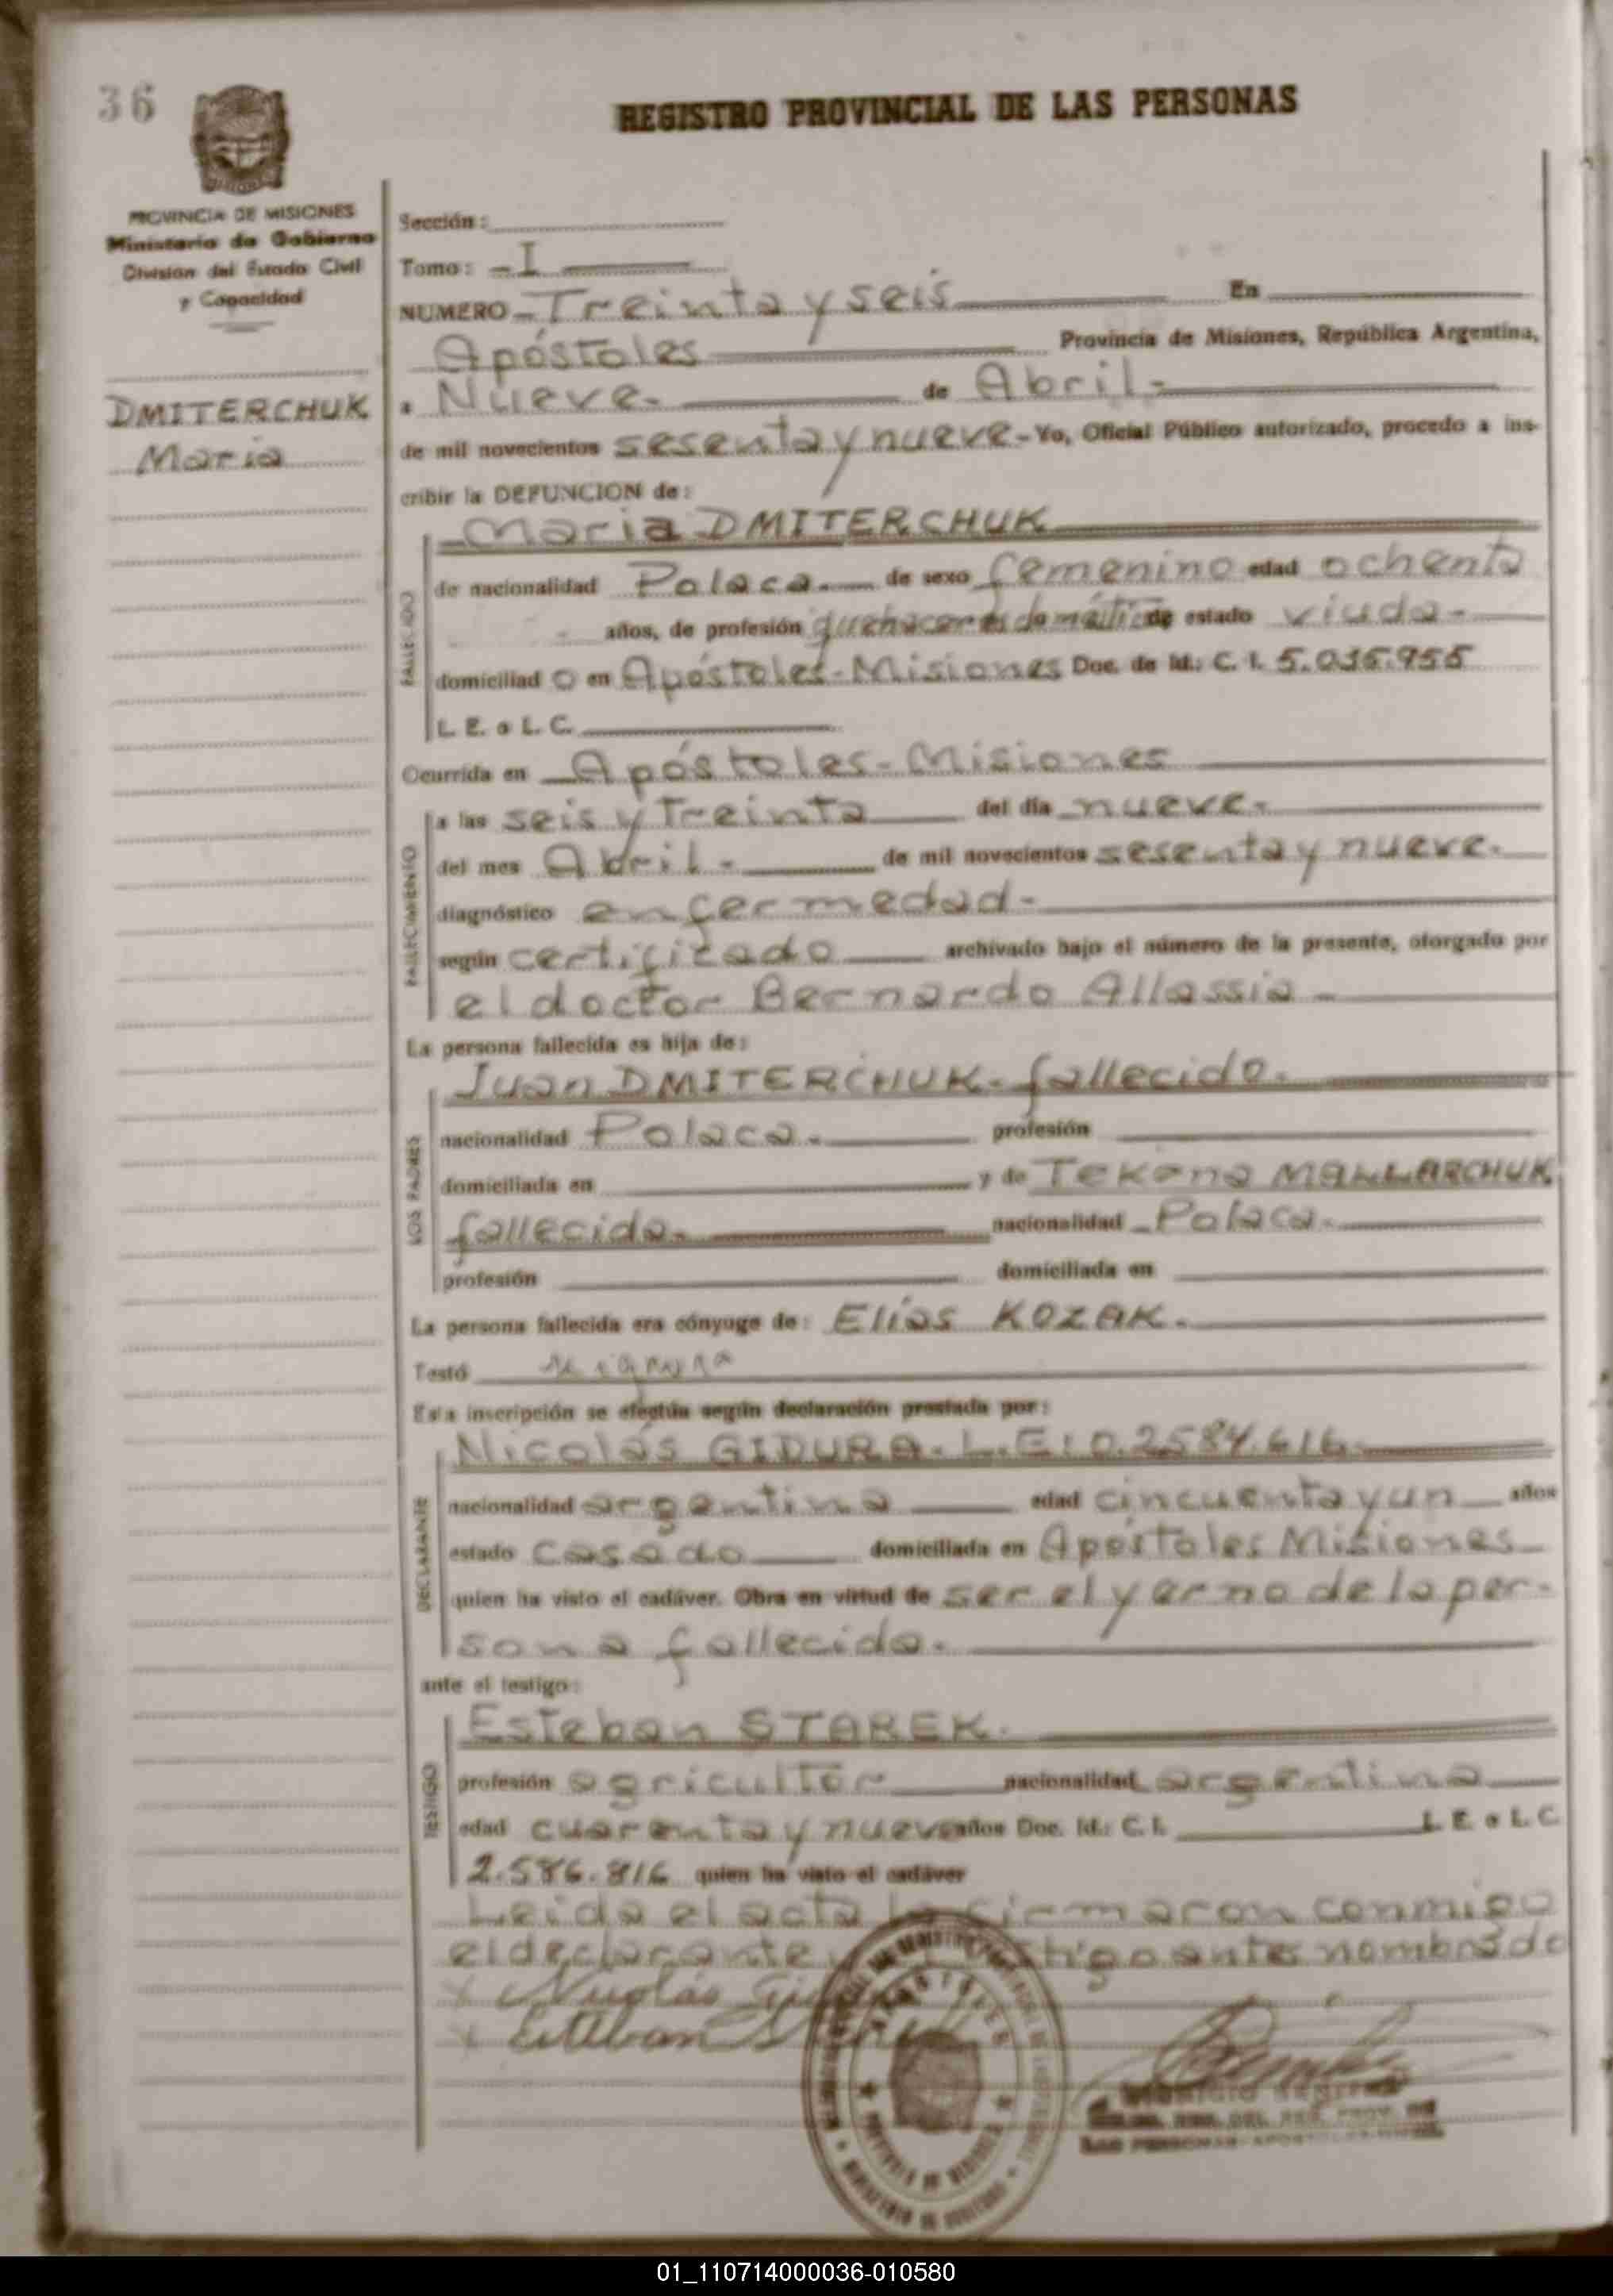 36
REGISTRO PROVINCIAL DE LAS PERSONAS
PROVINCIA DE MISIONES
Ministerio de Gobierno
Division del Estado Civil
y Capacidad
DMITERCHUK
Maria
Sección:
Tomo: - I
NUMERO - Treinta y seis En
Apóstoles Provincia de Misiones, República Argentina,
a Nueve. de Abril -
de mil novecientos sesenta y nueve - Yo, Oficial Público autorizado, procedo a ins-
cribir la DEFUNCION de:
FALLECIDO
Maria DMITERCHUK
de nacionalidad Polaca de sexo femenino edad ochenta
años, de profesión quehaceres de estado viuda -
domiciliad o en Apóstoles - Misiones Doc. de Id.: C. I. 5.035.955
L. E. o L. C.
Ocurrida en Apóstoles - Misiones
FALLECIMIENTO
a las seis y Treinta del día nueve -
del mes Abril - de mil novecientos sesenta y nueve.
diagnóstico enfermedad -
según certificado archivado bajo el número de la presente, otorgado por
el doctor Bernardo Allassia -
La persona fallecida es hija de:
LOS PADRES
Juan DMITERCHUK - fallecido.
nacionalidad Polaca. profesión
domiciliada en y de Tekana
fallecida. nacionalidad Polaca.
profesión domiciliada en
La persona fallecida era cónyuge de: Elías KOZAK.
Testó
Esta inscripción se efectúa según declaración prestada por:
DECLARANTE
Nicolás GIDURA. L.E: 0.2584.616
nacionalidad argentina edad cincuenta y un años
estado casado domiciliada en Apóstoles Misiones
quien ha visto el cadáver. Obra en virtud de ser el yerno de la per-
sona fallecida.
ante el testigo:
TESTIGO
Esteban STAREK.
profesión agricultor nacionalidad argentina
edad cuarenta y nueve años Doc. Id.: C. I. L. E. o L. C.
2.586.816 quien ha visto el cadáver
Leida el acta la firmaron conmigo
el declarante antes nombrado
Nicolás
Esteban
01_110714000036-010580